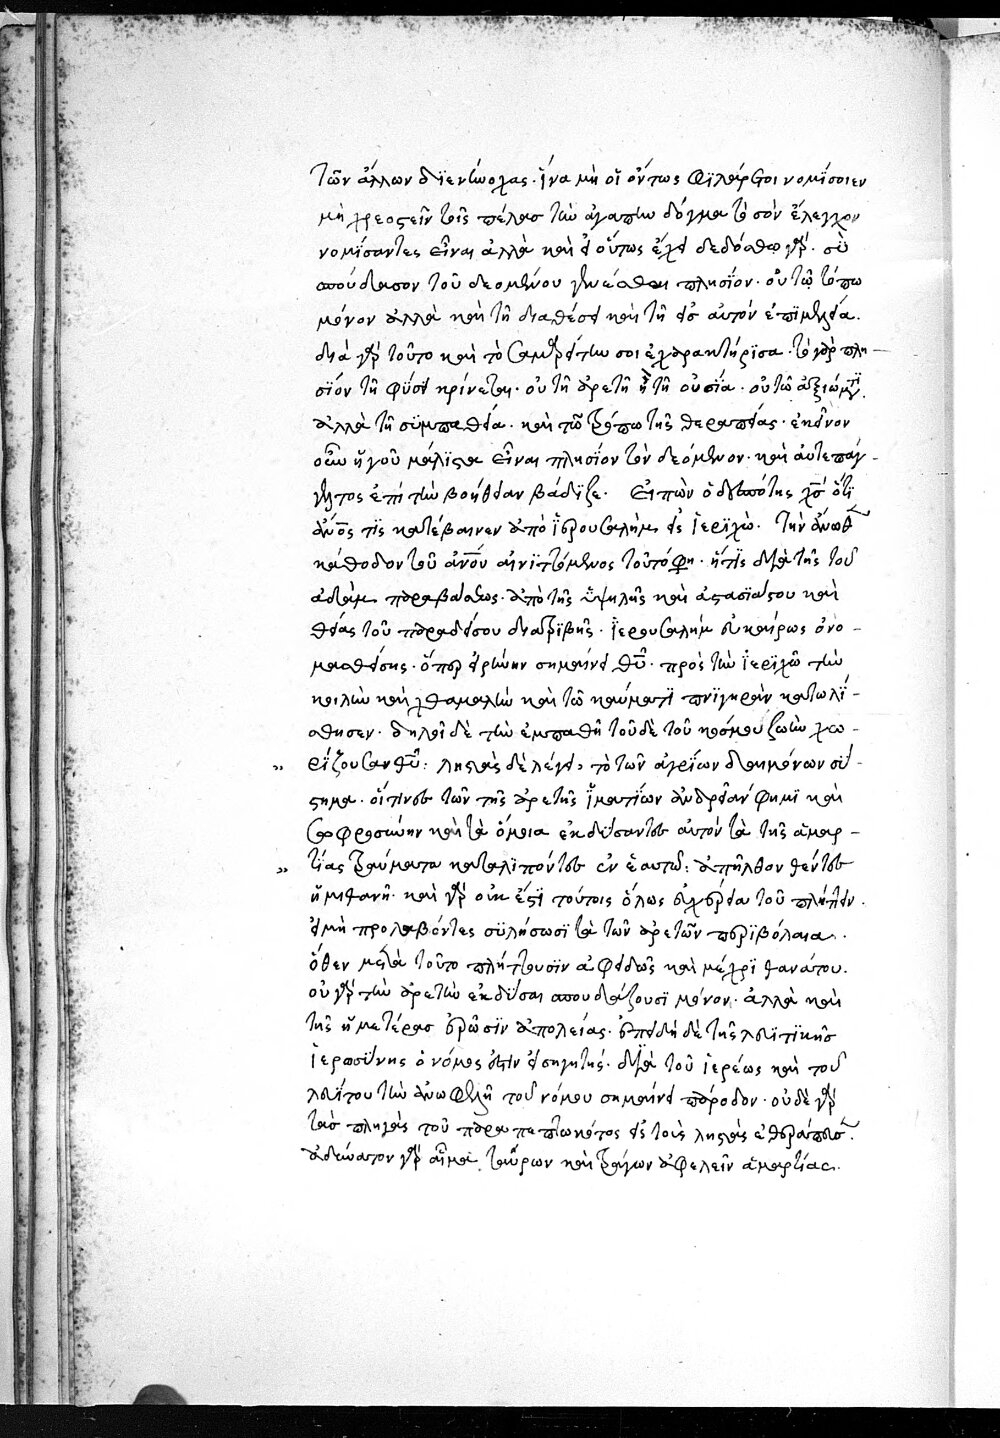 τῶν ἄλλων δϊ ἐντωολχας· ἵνα μὴ οἱ οὕτως φϊλάργοι νομίσοιεν
μὴ χρεοςεῖν τοῖς πέλασ τὴν ἀγάπην δόγμα τὸ σὸν ἔλεγχον
νομΐσαντες εἶναι ἀλλὰ καὶ εἰ οὕτως ἔχει δεδόσθω γὰρ· σὺ
σπούδασον τοῦ δεομένου γενέσθαι πλησΐον· οὐ τῶ τόπω
μόνον ἀλλὰ καὶ τῆ διαθέσει καὶ τῆ εἰς αὐτὸν ἐπϊμελεία.
διὰ γὰρ τοῦτο καὶ τὸ σαμαρείτην σοι ἐχαρακτήρϊσα· τὸ γὰρ πλη
σΐον τῆ φύσει κρίνεται· οὐ τῆ ἀρετῆ ἢ τῆ οὐσία· οὐ τῶ ἀξιώματϊ.
ἀλλὰ τῆ συμπαθεία· καὶ τῶ τρόπω τῆς θεραπείας· ἐκεῖνον
οὖν ἡγοῦ μάλϊστα εἶναι πλησΐον τὸν δεόμενον· καὶ αὐτεπάγ-
γελτος ἐπὶ τὴν βοήθειαν βάδϊζε. Εἰπὼν ὁ δεσπότης χς ὅτϊ
ἄνος τὶς κατέβαινεν ἀπὸ ϊερουσαλὴμ εἰς ϊερϊχὼ· τὴν ἄνωθεν
κάθοδον τοῦ ἀνου αἰνϊττόμενος τοῦτό φη· ἥτϊς διὰ τῆς τοῦ
ἀδὰμ παραβάσεως· ἀπὸ τῆς ὑψηλῆς καὶ ἀστασϊάστου καὶ
θείας τοῦ παραδείσου διατρϊβῆς· ϊερουσαλὴμ εὐκαίρως ὀνο-
μασθείσης· ὅπερ εἰρήνην σημαίνει θυ· πρὸς τὴν ϊερϊχὼ τὴν
κοιλὴν καὶ χθαμαλὴν καὶ τῶ καύματϊ πνϊγηρὰν κατωλΐ-
σθησεν· δηλοῖ δὲ τὴν ἐμπαθῆ τοῦδε τοῦ κόσμου ζωὴν χω-
ρΐζουσαν θυ: ληστὰς δὲ λέγει, τὸ τῶν ἀγρΐων δαιμόνων σύ-
στημα· οἵτινες τῶν τῆς ἀρετῆς ϊματΐων ἀνδρείαν φημϊ καὶ
σωφροσύνην καὶ τὰ ὅμοια ἐκδύσαντες αὐτὸν τὰ τῆς ἁμαρ-
τίας τραύματα καταλϊπόντες ἐν ἑαυτῶ: ἀπῆλθον θέντες
ἡμιθανῆ· καὶ γὰρ οὐκ ἔστϊ τούτοις ὅλως εὐχέρεια τοῦ πλήττειν·
εἰ μὴ προλαβόντες συλήσωσϊ τὰ τῶν ἀρετῶν περϊβόλαια·
ὅθεν μετὰ τοῦτο πλήττουσϊν ἀφειδῶς καὶ μέχρϊ θανάτου.
οὐ γὰρ τὴν ἀρετὴν ἐκδῦσαι σπουδάζουσϊ μόνον· ἀλλὰ καὶ
τῆς ἡμετέρασ ἐρῶσϊν ἀπολείας· ἐπειδὴ δὲ τῆς λευϊτϊκῆς
ϊερωσύνης ὁ νόμος ἐστὶν εἰσηγητής· διὰ τοῦ ϊερέως καὶ τοῦ
λευΐτου τὴν ἀνωφελῆ τοῦ νόμου σημαίνει πάροδον· οὐδὲ γὰρ
τὰσ πληγὰς τοῦ παραπεπτωκότος εἰς τοὺς ληστὰς ἐθεράπευσεν.
ἀδύνατον γὰρ αἷμα ταύρων καὶ τράγων ἀφελεῖν ἁμαρτίας.